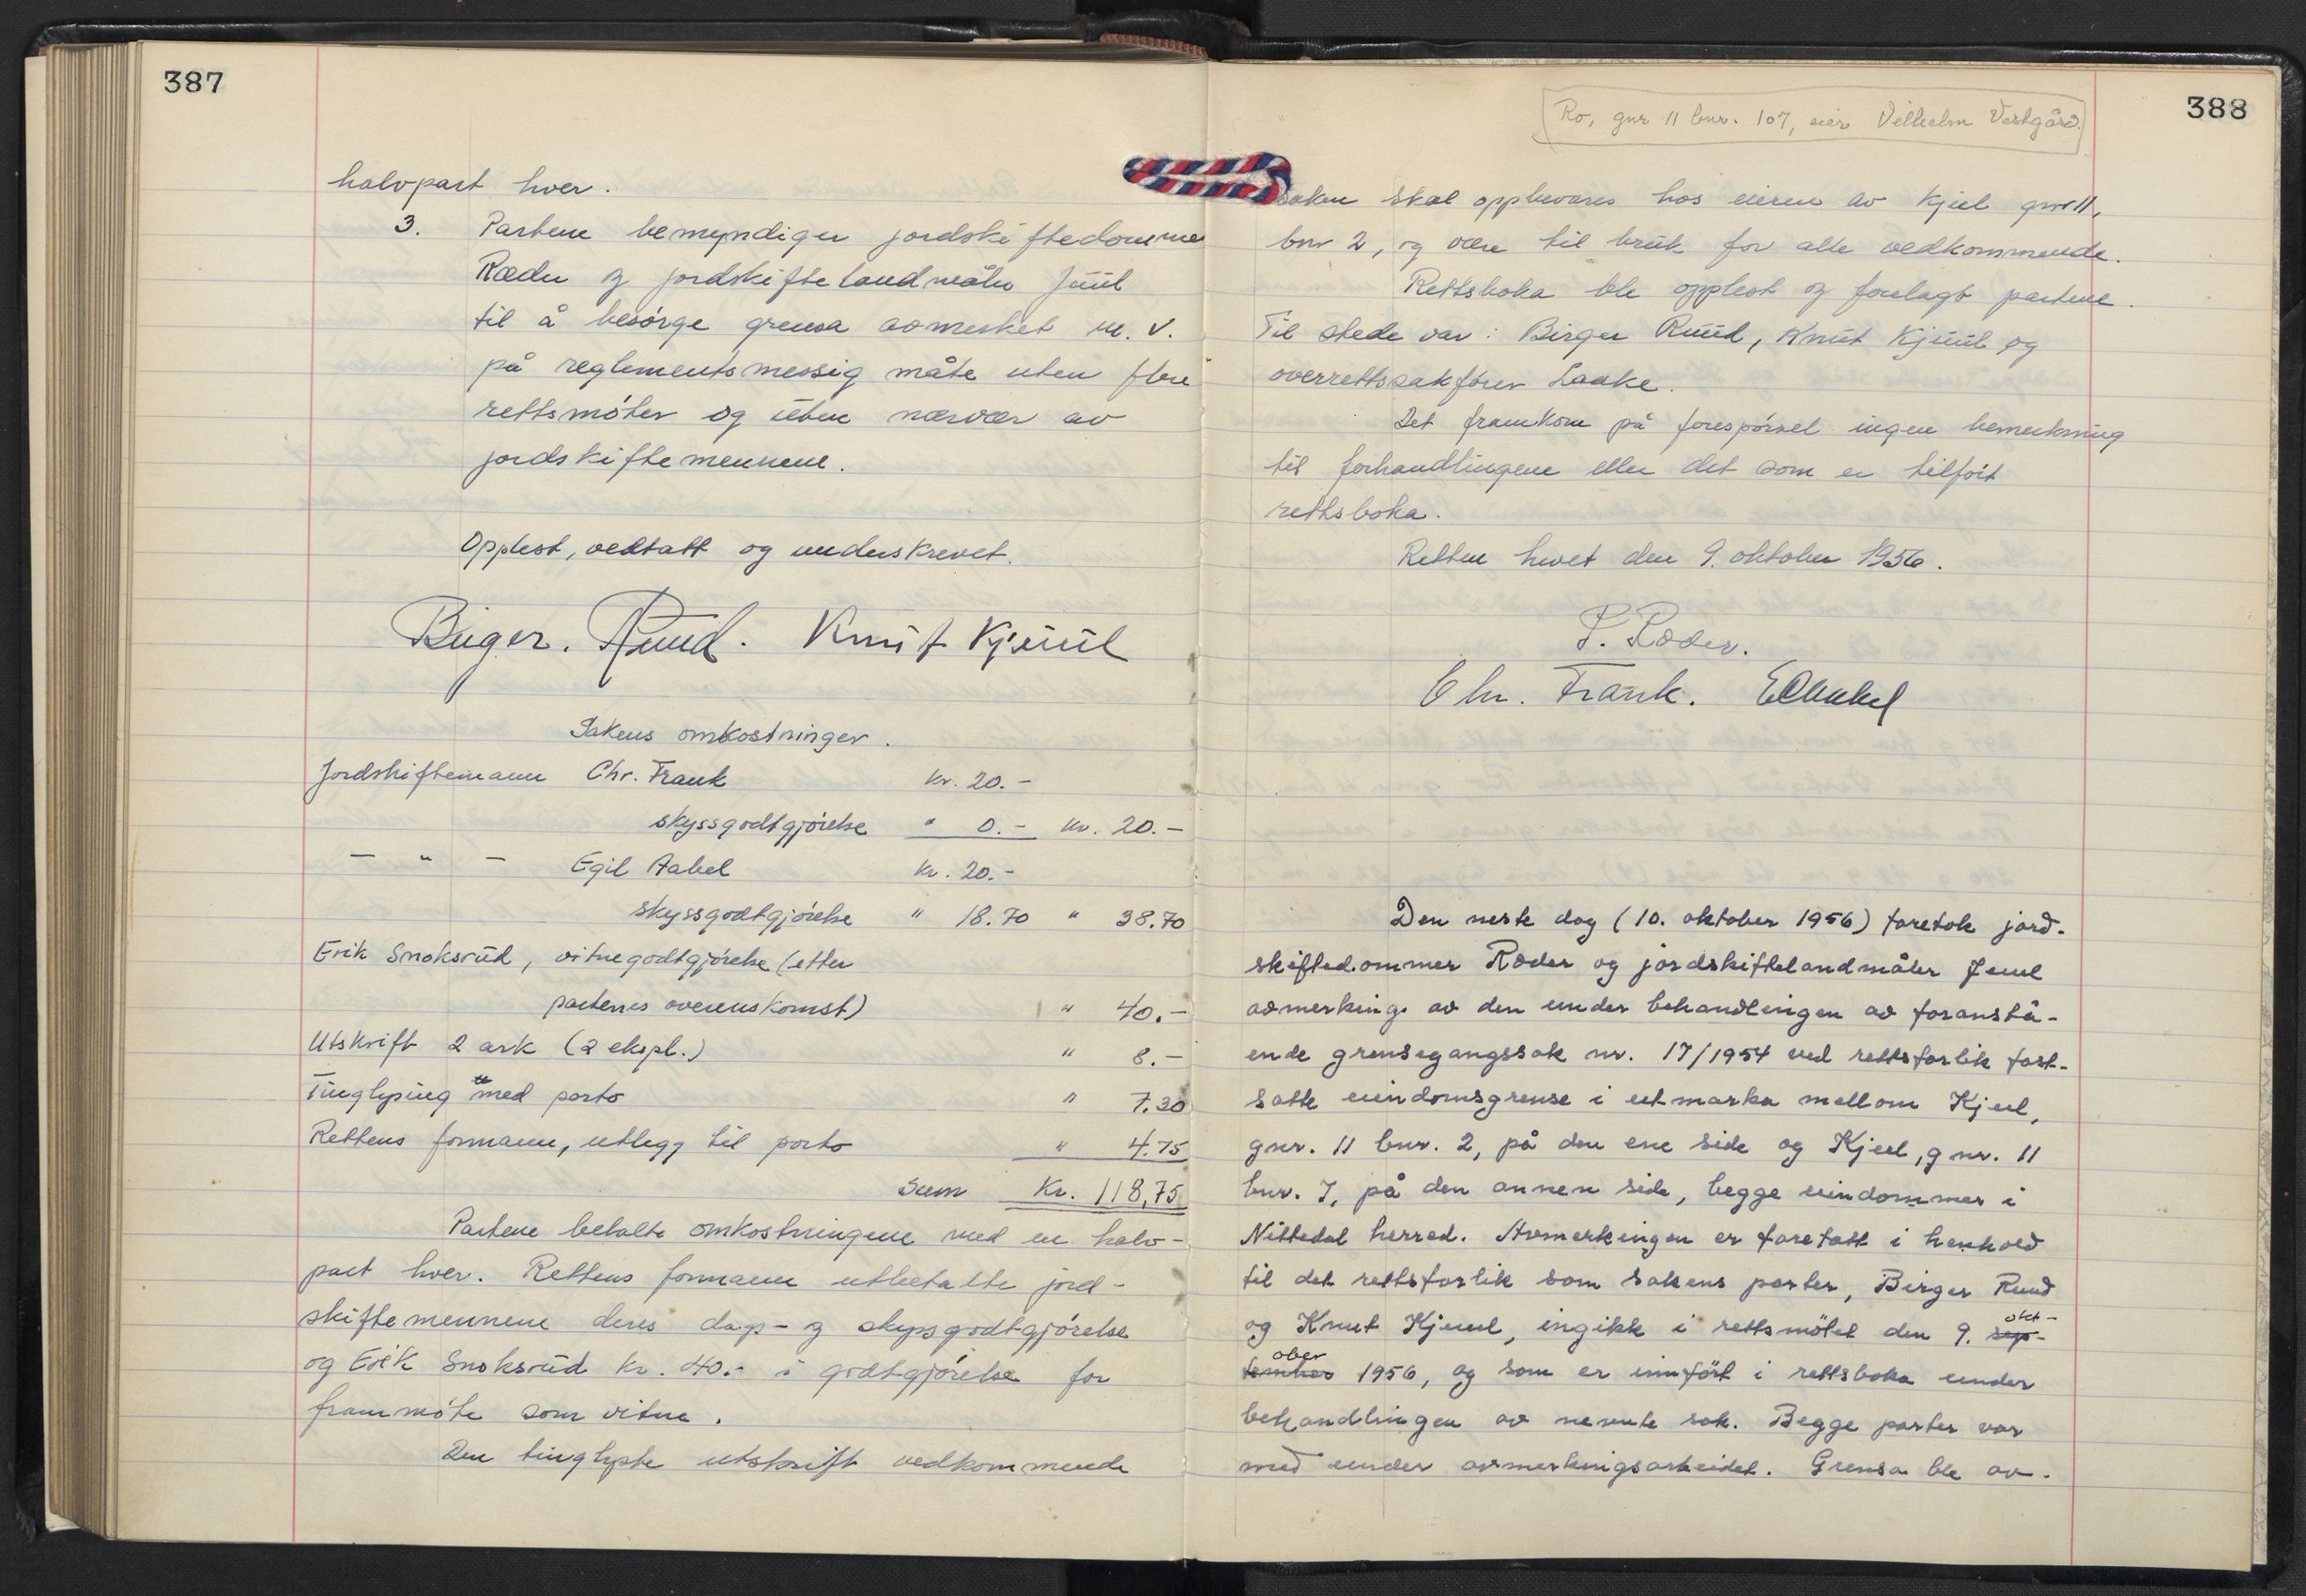 387
halvpart hver.
3. Partene bemyndiger jordskiftedommer
Ræder og jordskiftelandmåler Juul
til å besørge grensa avmerket m. v.
på reglementsmessig måte uten flere
rettsmøter og uten nærvær av
jordskiftemennene.
Opplest, vedtatt og underskrevet.
Birger. Ruud. Knut Kjuul
Sakens omkostninger.
Jordskiftemann Chr. Frank kr. 20.-
skyssgodtgjørelse " 0.- kr. 20.-
- " - Egil Aabel kr. 20.-
skyssgodtgjørelse " 18.70 " 38.70
Erik Snoksrud, vitnegodtgjørelse (etter
partenes overenskomst) " 40.-
Utskrift 2 ark (2 ekspl.) " 8.-
Tinglysing med porto " 7.30
Rettens formann, utlegg til porto " 4.75
Sum Kr. 118,75
Partene betalte omkostningene med en halv-
part hver. Rettens formann utbetalte jord-
skiftemennene deres dags- og skyssgodtgjørelse
og Erik Snoksrud kr. 40.- i godtgjørelse for
frammøte som vitne.
Den tinglyste utskrift vedkommende
388
Ro, gnr 11 bnr. 107, eier Vilhelm Vestgård.
saken skal oppbevares hos eieren av Kjul gnr 11,
bnr 2, og være til bruk for alle vedkommende.
Rettsboka ble opplest og forelagt partene.
Til stede var: Birger Ruud, Knut Kjuul og
overrettssakfører Laake.
Det framkom på forespørsel ingen bemerkning
til forhandlingene eller det som er tilført
rettsboka.
Retten hevet den 9. oktober 1956.
P. Ræder.
Chr. Frank. E Aabel
Den neste dag (10. oktober 1956) foretok jord-
skiftedommer Ræder og jordskiftelandmåler Juul
avmerking av den under behandlingen av foranstå-
ende grensegangssak nr. 17/1954 ved rettsforlik fast-
satte eiendomsgrense i utmarka mellom Kjul,
gnr. 11 bnr. 2, på den ene side og Kjul, gnr. 11
bnr. 7, på den annen side, begge eiendommer i
Nittedal herred. Avmerkingen er foretatt i henhold
til det rettsforlik som sakens parter, Birger Ruud
og Knut Kjuul, inngikk i rettsmøtet den 9. sep- okt-
tember ober 1956, og som er innført i rettsboka under
behandlingen av nevnte sak. Begge parter var
med under avmerkingsarbeidet. Grensa ble av-